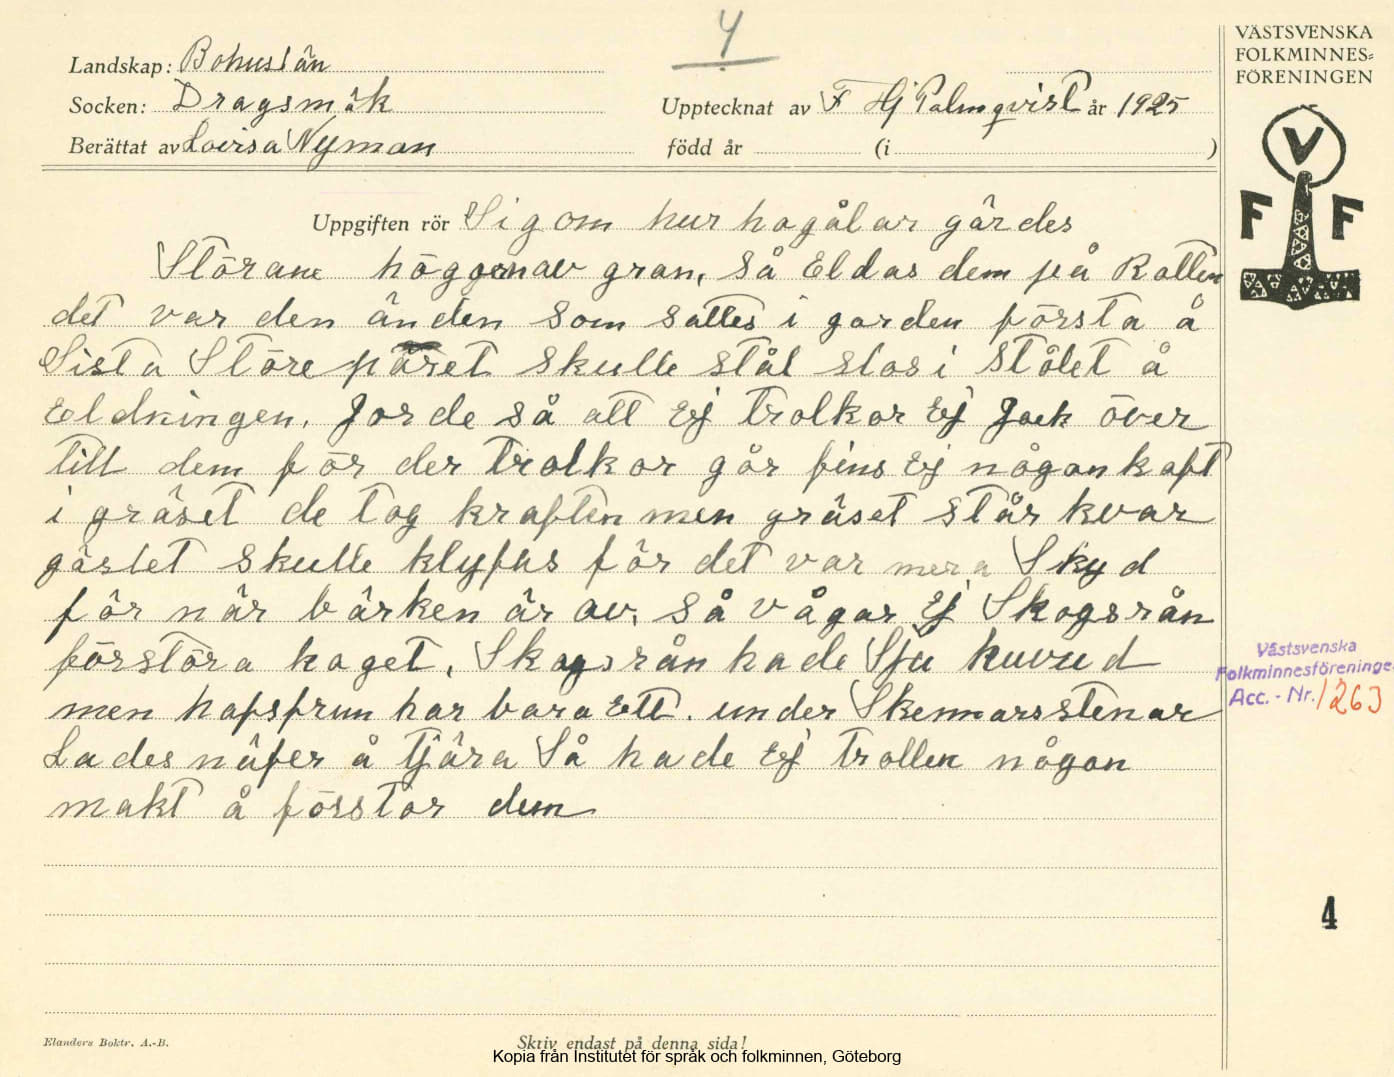 4
VÄSTSVENSKA
FOLKMINNES=
FÖRENINGEN
V
F F
Landskap: Bohuslän
Socken: Dragsmark
Upptecknat av F Hj Palmqvist år 1925
Berättat av Lovisa Nyman
född år (i )
Uppgiften rör Sig om hur hagålar gärdes
Störane höggen av gran, så Eldas dem på Rotten
det var den änden som sattes i garden första å
Sista Störe päret skulle stål slas i Stålet å
Eldningen, Jorde så att Ej trolkar Ej Jack över
till dem för der trolkor går fins Ej någon kaft
i gräset de tog kraften men gräset står kvar
gärslet skulle klyfas för det var mera Skyd
för när bärken är av, så vågar Ej Skogsrån
förstöra haget, Skogsrån hade Sju huvud
men hafsfrun har bara Ett. under Skennarsstenar
Lades näfer å tjära Så hade Ej trollen någon
makt å förstör dem
Västsvenska
Folkminnesförening
Acc. - Nr. 1263
4
Elanders Boktr. A.-B.
Skriv endast på denna sida!
Kopia från Institutet för språk och folkminnen, Göteborg